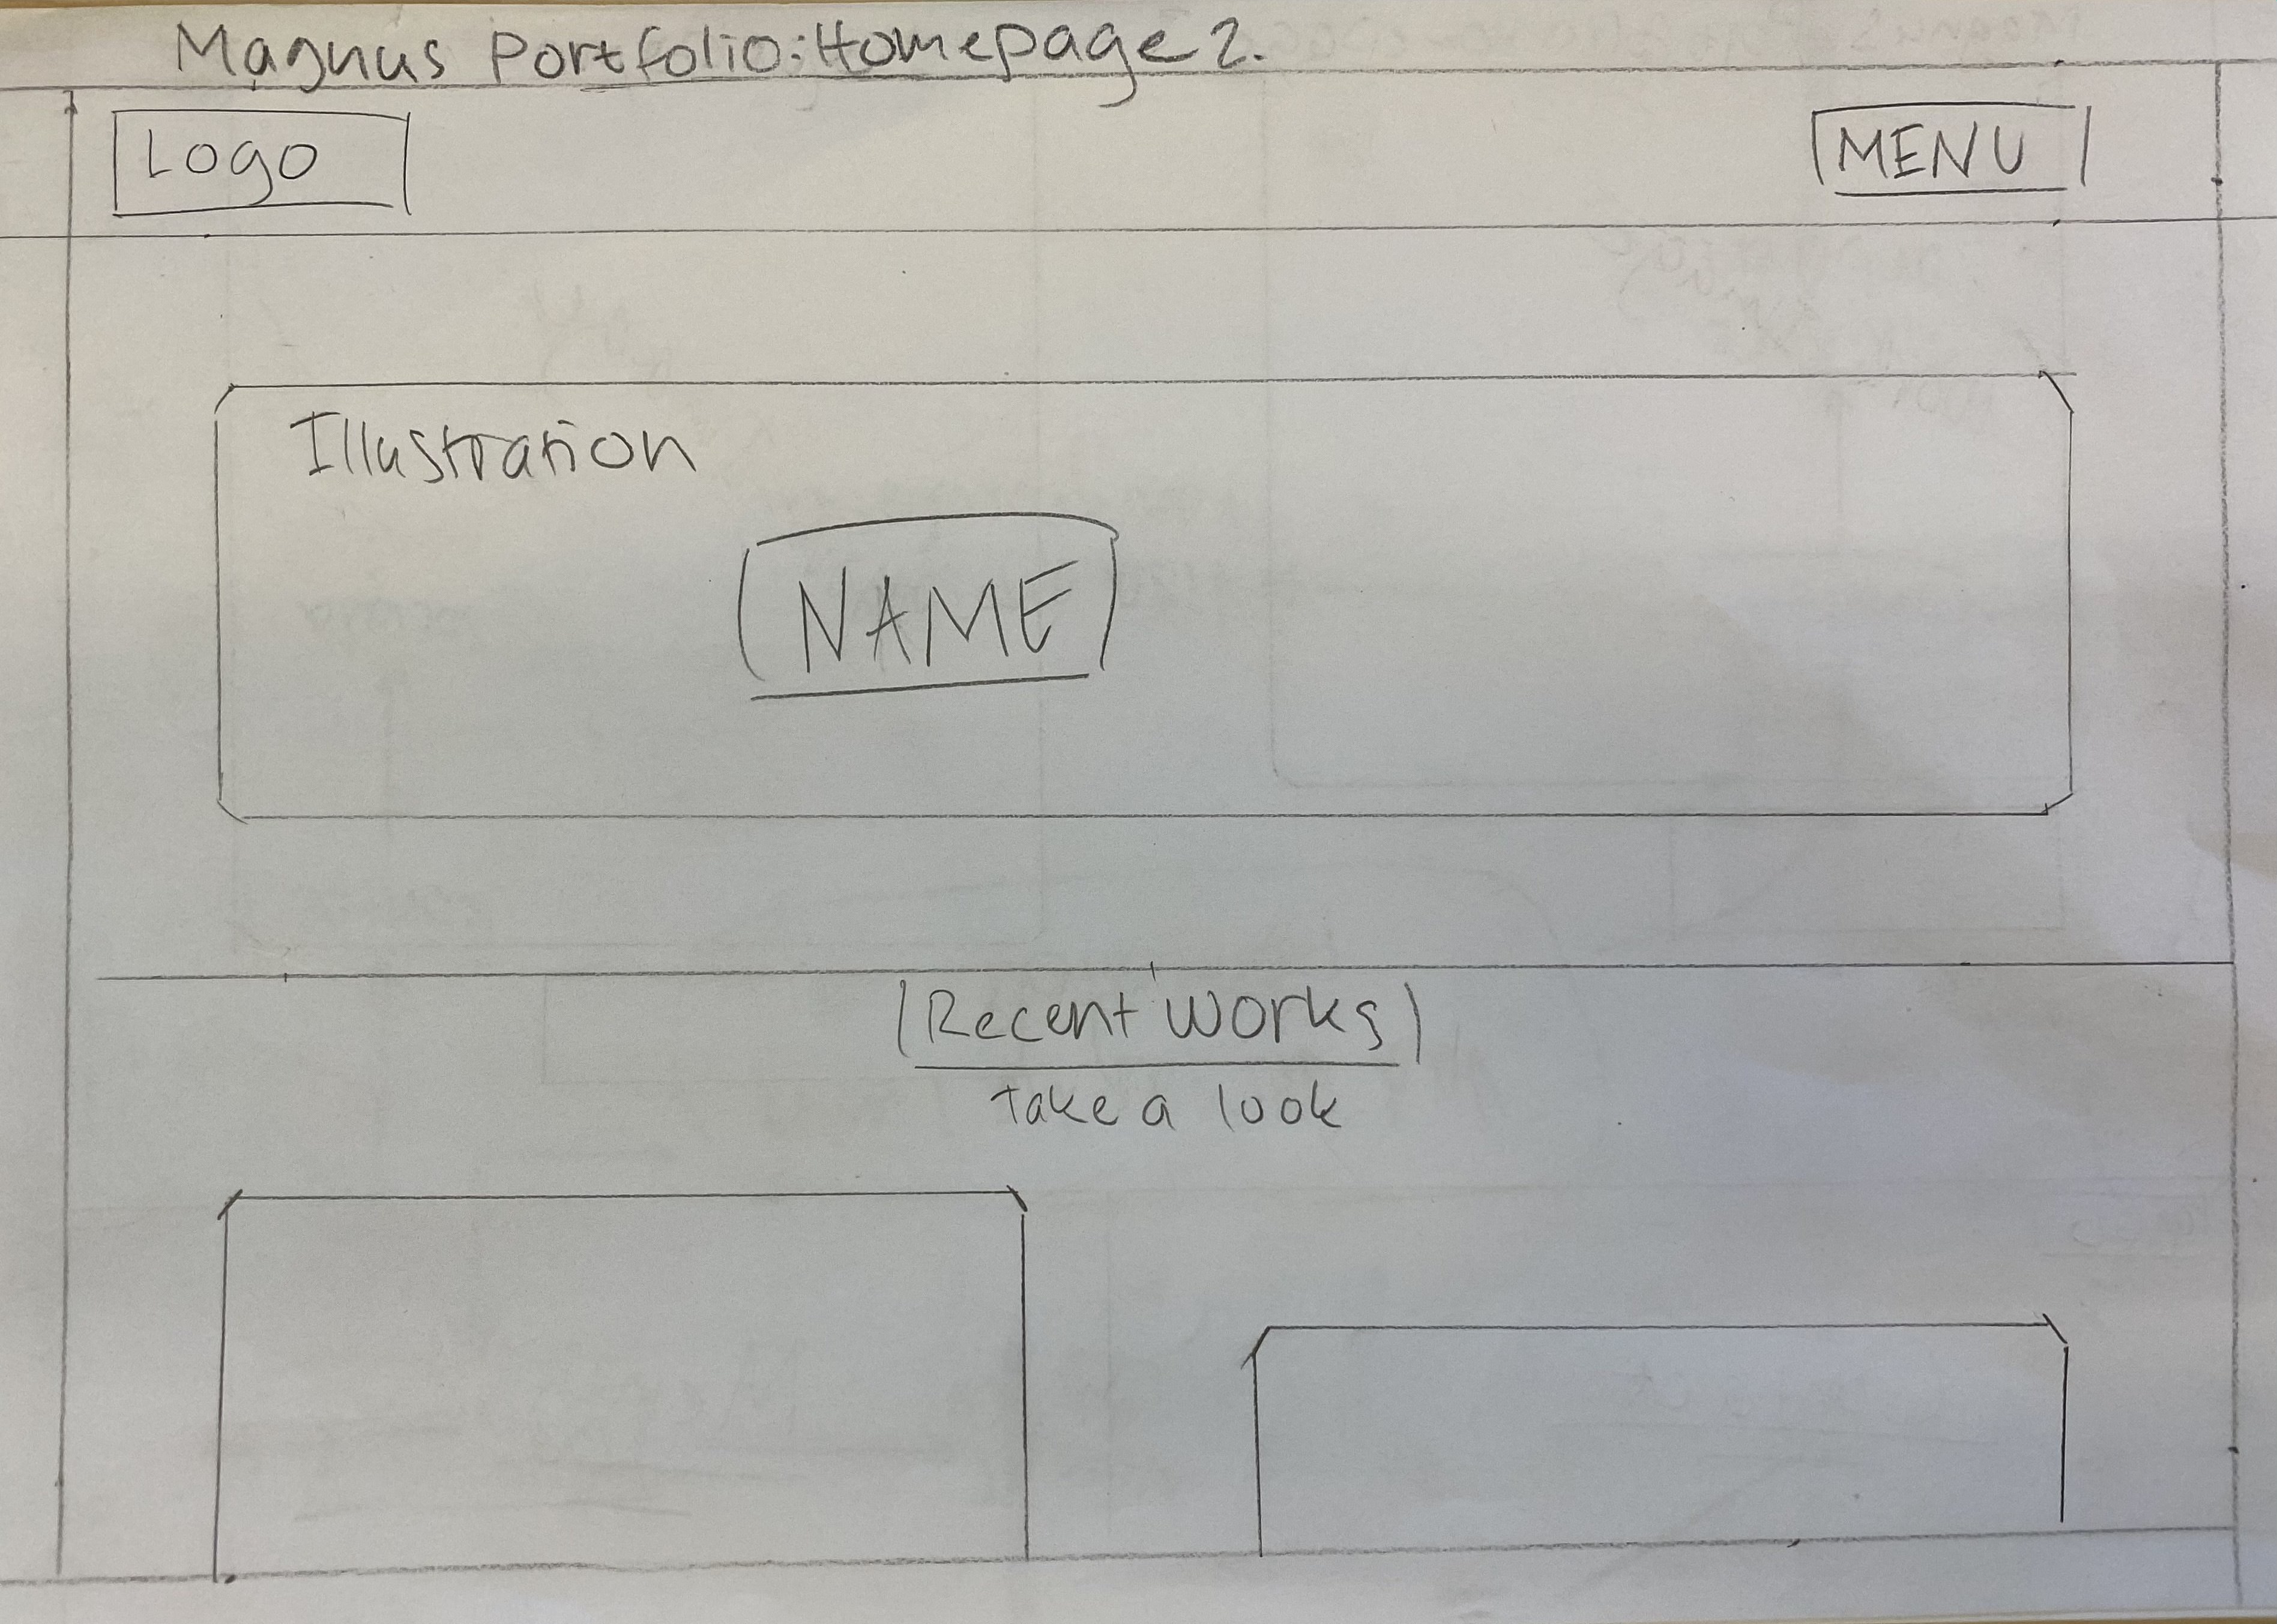 Magnus Portfolio: Homepage 2.
Logo
MENU
Illustration
NAME
Recent Works
Take a look